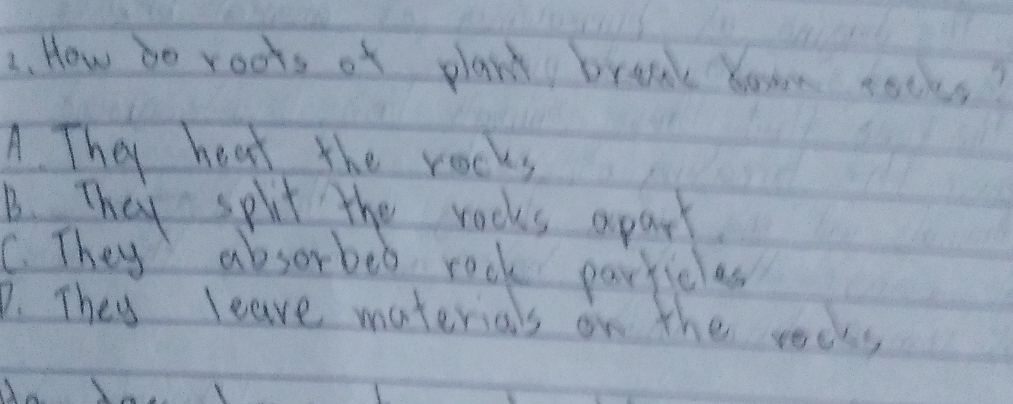 2. How do roots of plant break down rocks?
A. They heat the rocks
B. They split the rocks apart.
C. They absorbed rock particles
D. They leave materials on the rocks